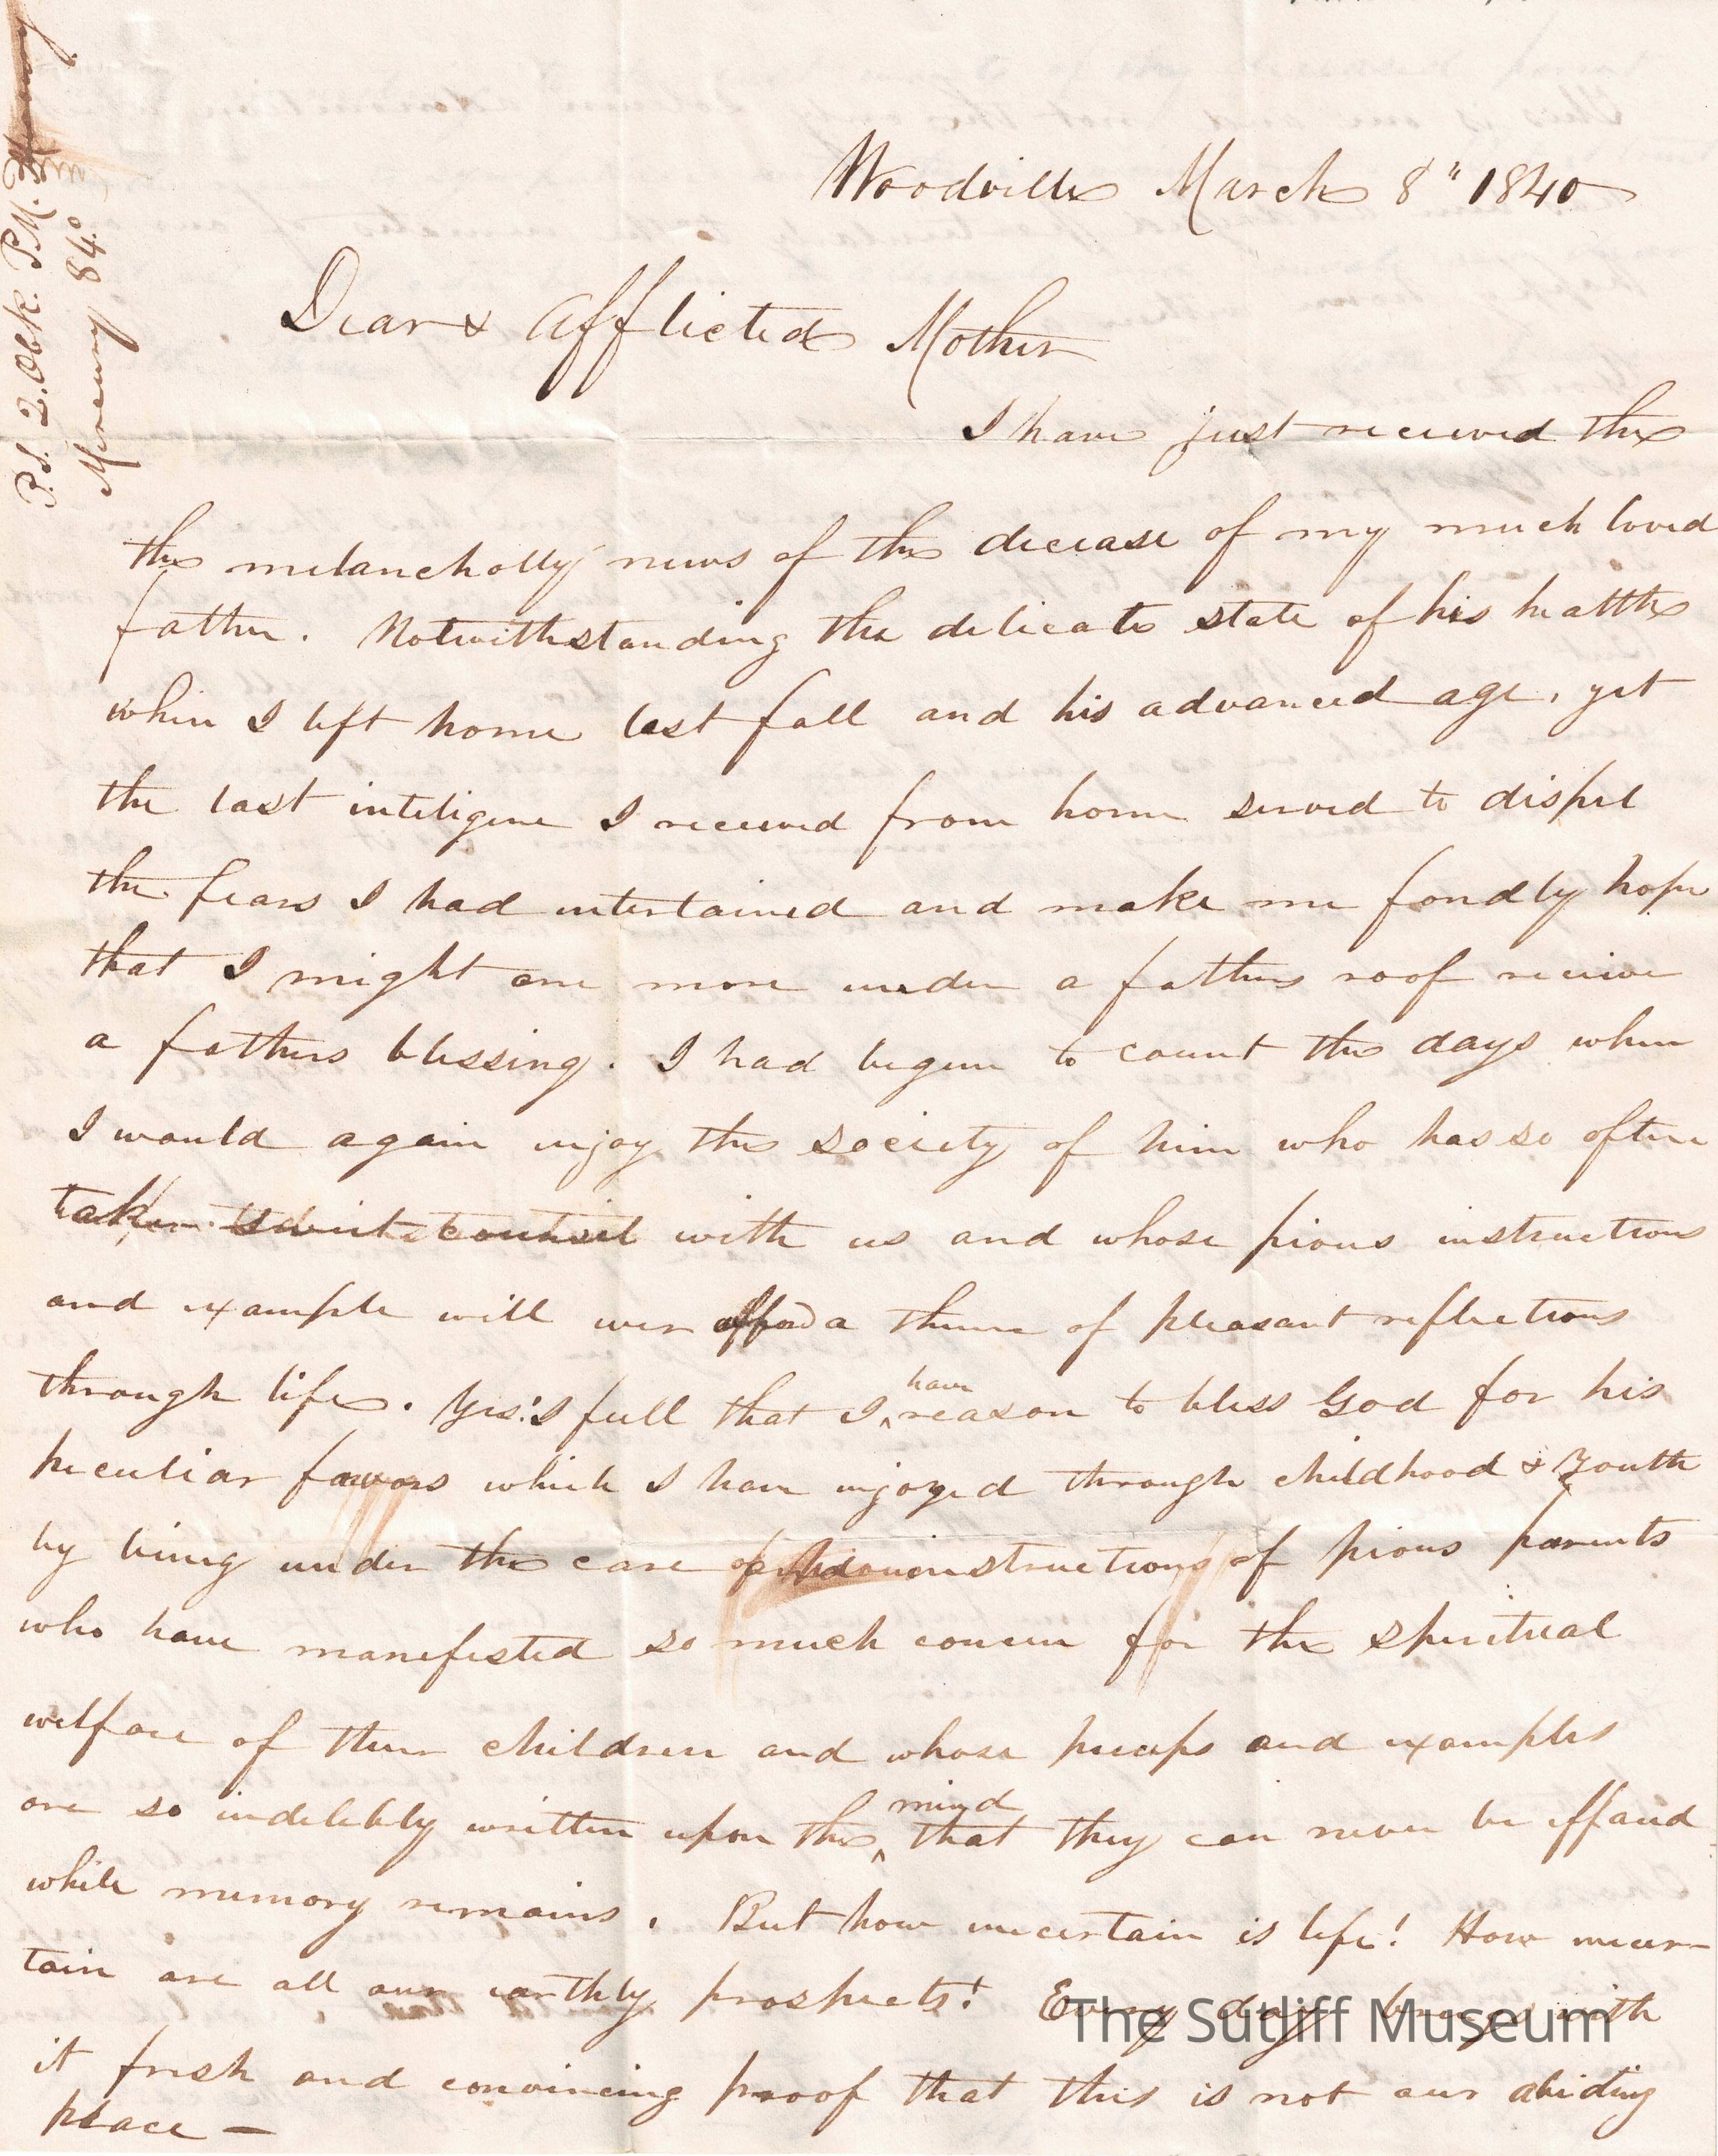 P.S. 2. Oclk. P.M.
Mercury 84°
Woodville March 8" 1840
Dear & Afflicted Mother
I have just received the
the melancholly news of the decease of my much loved
father. Notwithstanding the delicate state of his health
when I left home last fall and his advanced age, yet
the last inteligence I received from home served to dispel
the fears I had entertained and make me fondly hope
that I might once more under a fathers roof receive
a fathers blessing. I had begun to count the days when
I would again enjoy the society of him who has so often
taken sweet counsil with us and whose pious instructions
and example will ever afford a theme of pleasant reflections
through life. Yes! I feell that I have reason to bless God for his
peculiar favors which I have enjoyed through childhood & Youth
by being under the care instructions of pious parents
who have manefested so much concern for the spiritual
welfare of their children and whose preceps and examples
are so indelebly written upon the mind that they can never be effaced
while memory remains. But how uncertain is life! How uncer-
tain are all our earthly prospects! Every day brings with
it fresh and convincing proof that this is not our abiding
place —
The Sutliff Museum